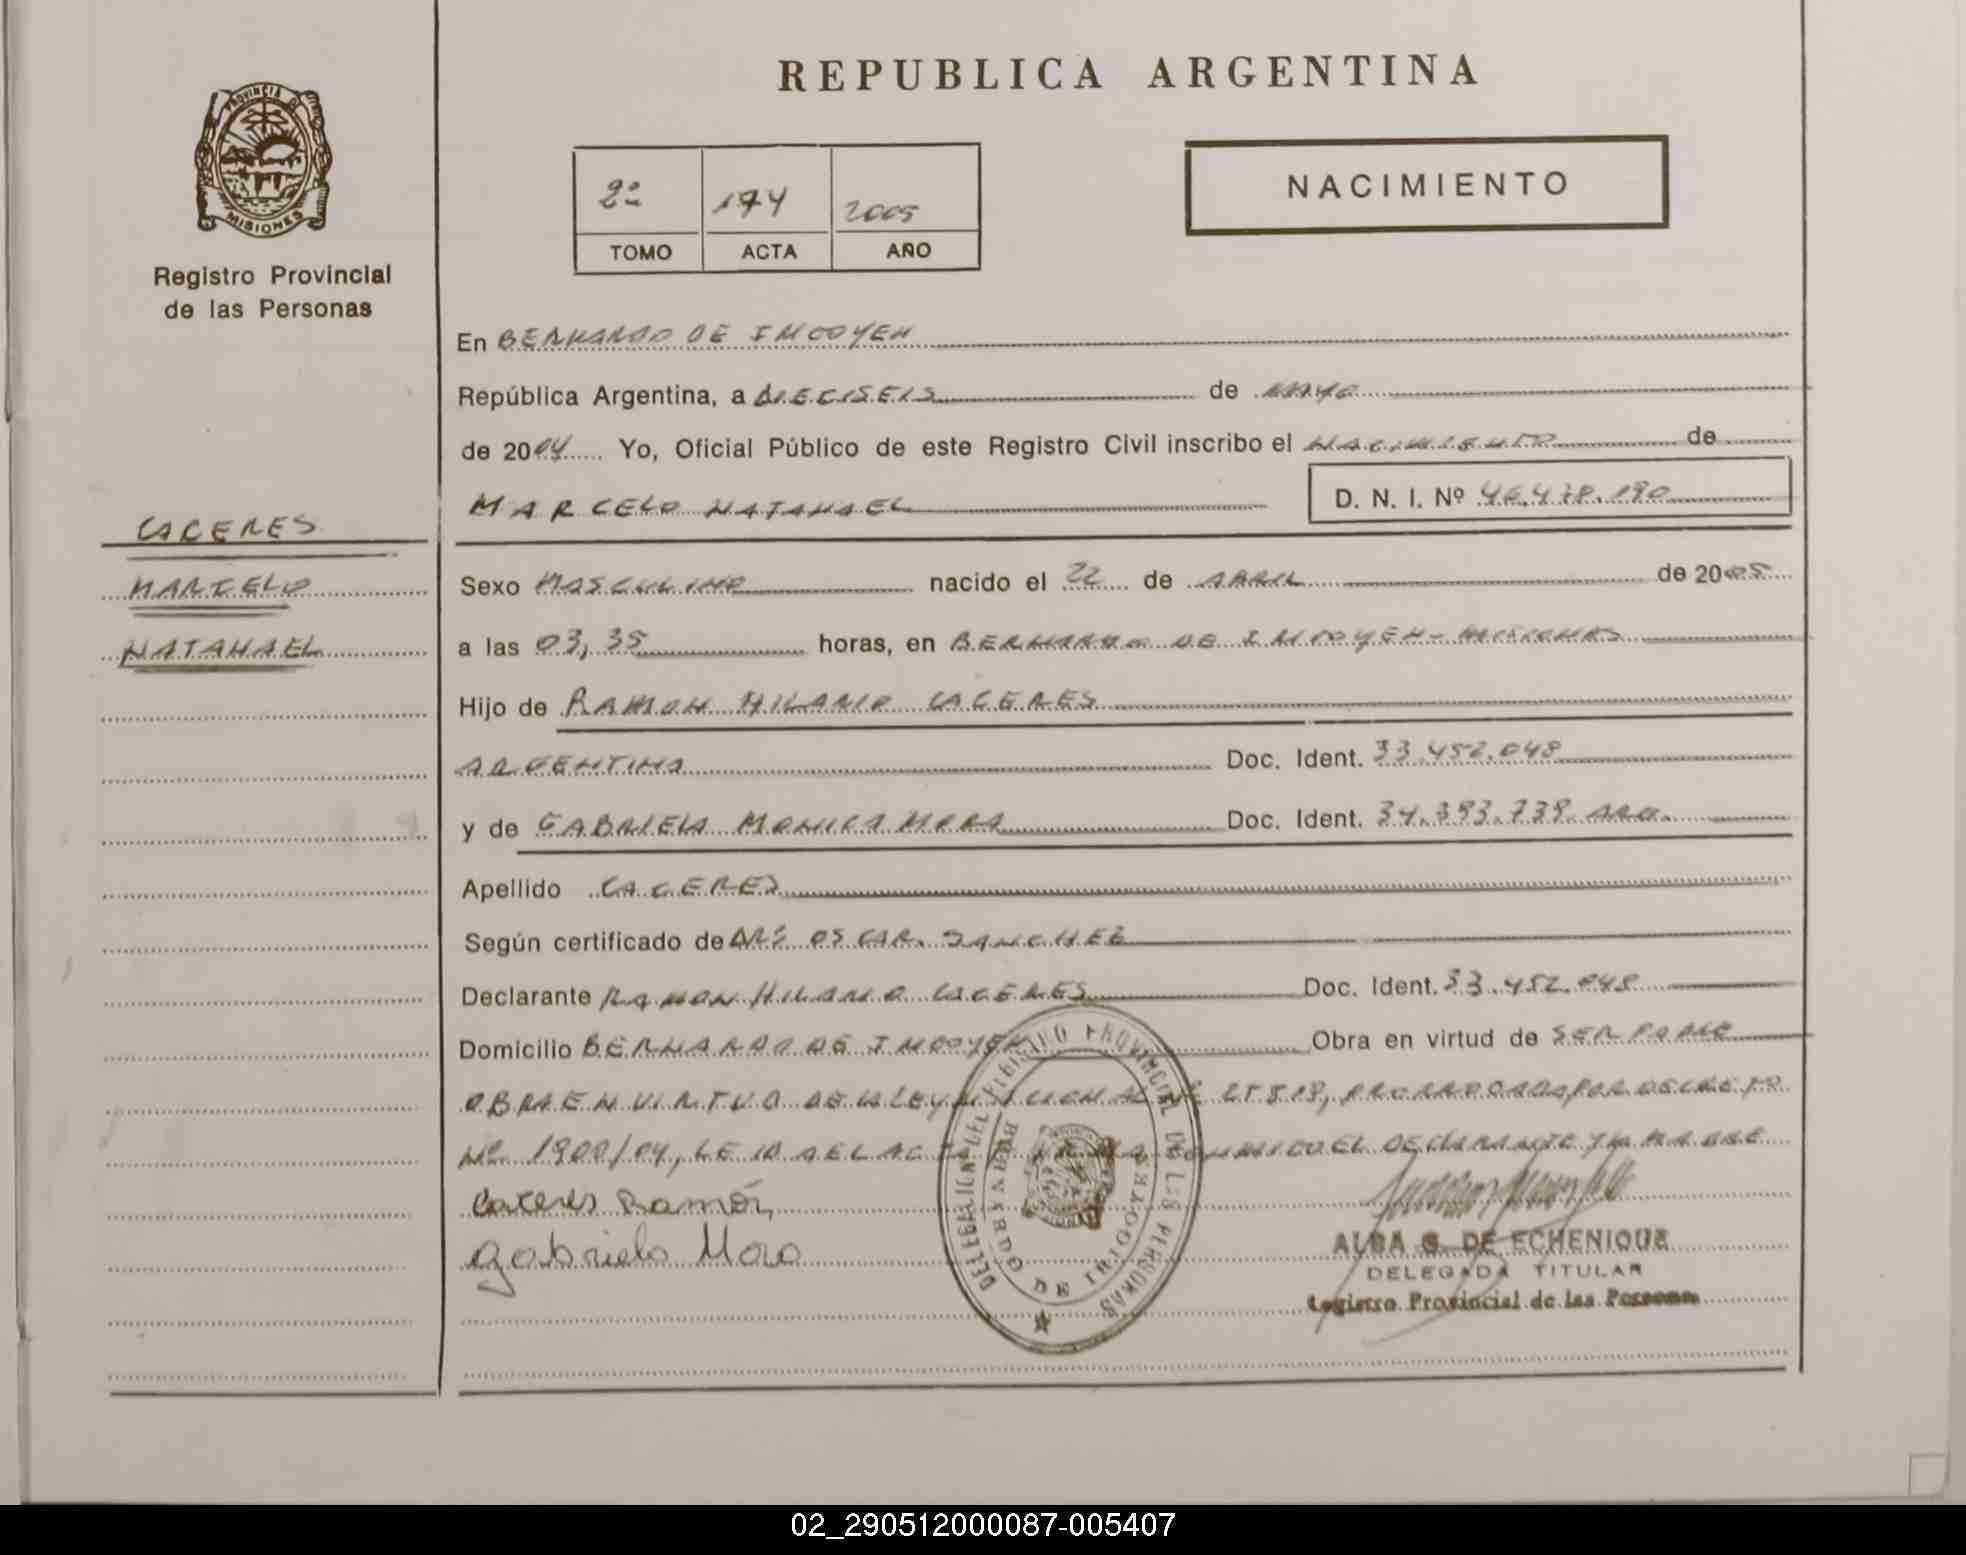 REPUBLICA ARGENTINA
PROVINCIA DE
MISIONES
Registro Provincial
de las Personas
2º 174 2005
TOMO ACTA AÑO
NACIMIENTO
En BERNARDO DE IRIGOYEN
República Argentina, a DIECISEIS de MAYO
de 2004 Yo, Oficial Público de este Registro Civil inscribo el NACIMIENTO de
MARCELO NATANAEL D. N. I. Nº 46.478.190
CACERES
MARCELO
NATANAEL
Sexo MASCULINO nacido el 22 de ABRIL de 2005
a las 03,35 horas, en BERNARDO DE IRIGOYEN - MISIONES
Hijo de RAMON HILARIO CACERES
ARGENTINA Doc. Ident. 33.452.048
y de GABRIELA MONICA MORA Doc. Ident. 34.393.739 ARG.
Apellido CACERES
Según certificado de OSCAR SANCHEZ
Declarante RAMON HILARIO CACERES Doc. Ident. 33.452.048
Domicilio BERNARDO DE IRIGOYEN Obra en virtud de SER PADRE
OBRA EN VIRTUD DE LA LEY 25819, PRORROGADA POR DECRETO
Nº 1900/04, LEIDA EL ACTA CONMIGO EL DECLARANTE Y LA MADRE
Caceres Ramón
Gabriela Mora
DELEGACION DEL REGISTRO PROVINCIAL DE LAS PERSONAS
BERNARDO DE IRIGOYEN
ALBA G. DE ECHENIQUE
DELEGADA TITULAR
Registro Provincial de las Personas
02_290512000087-005407